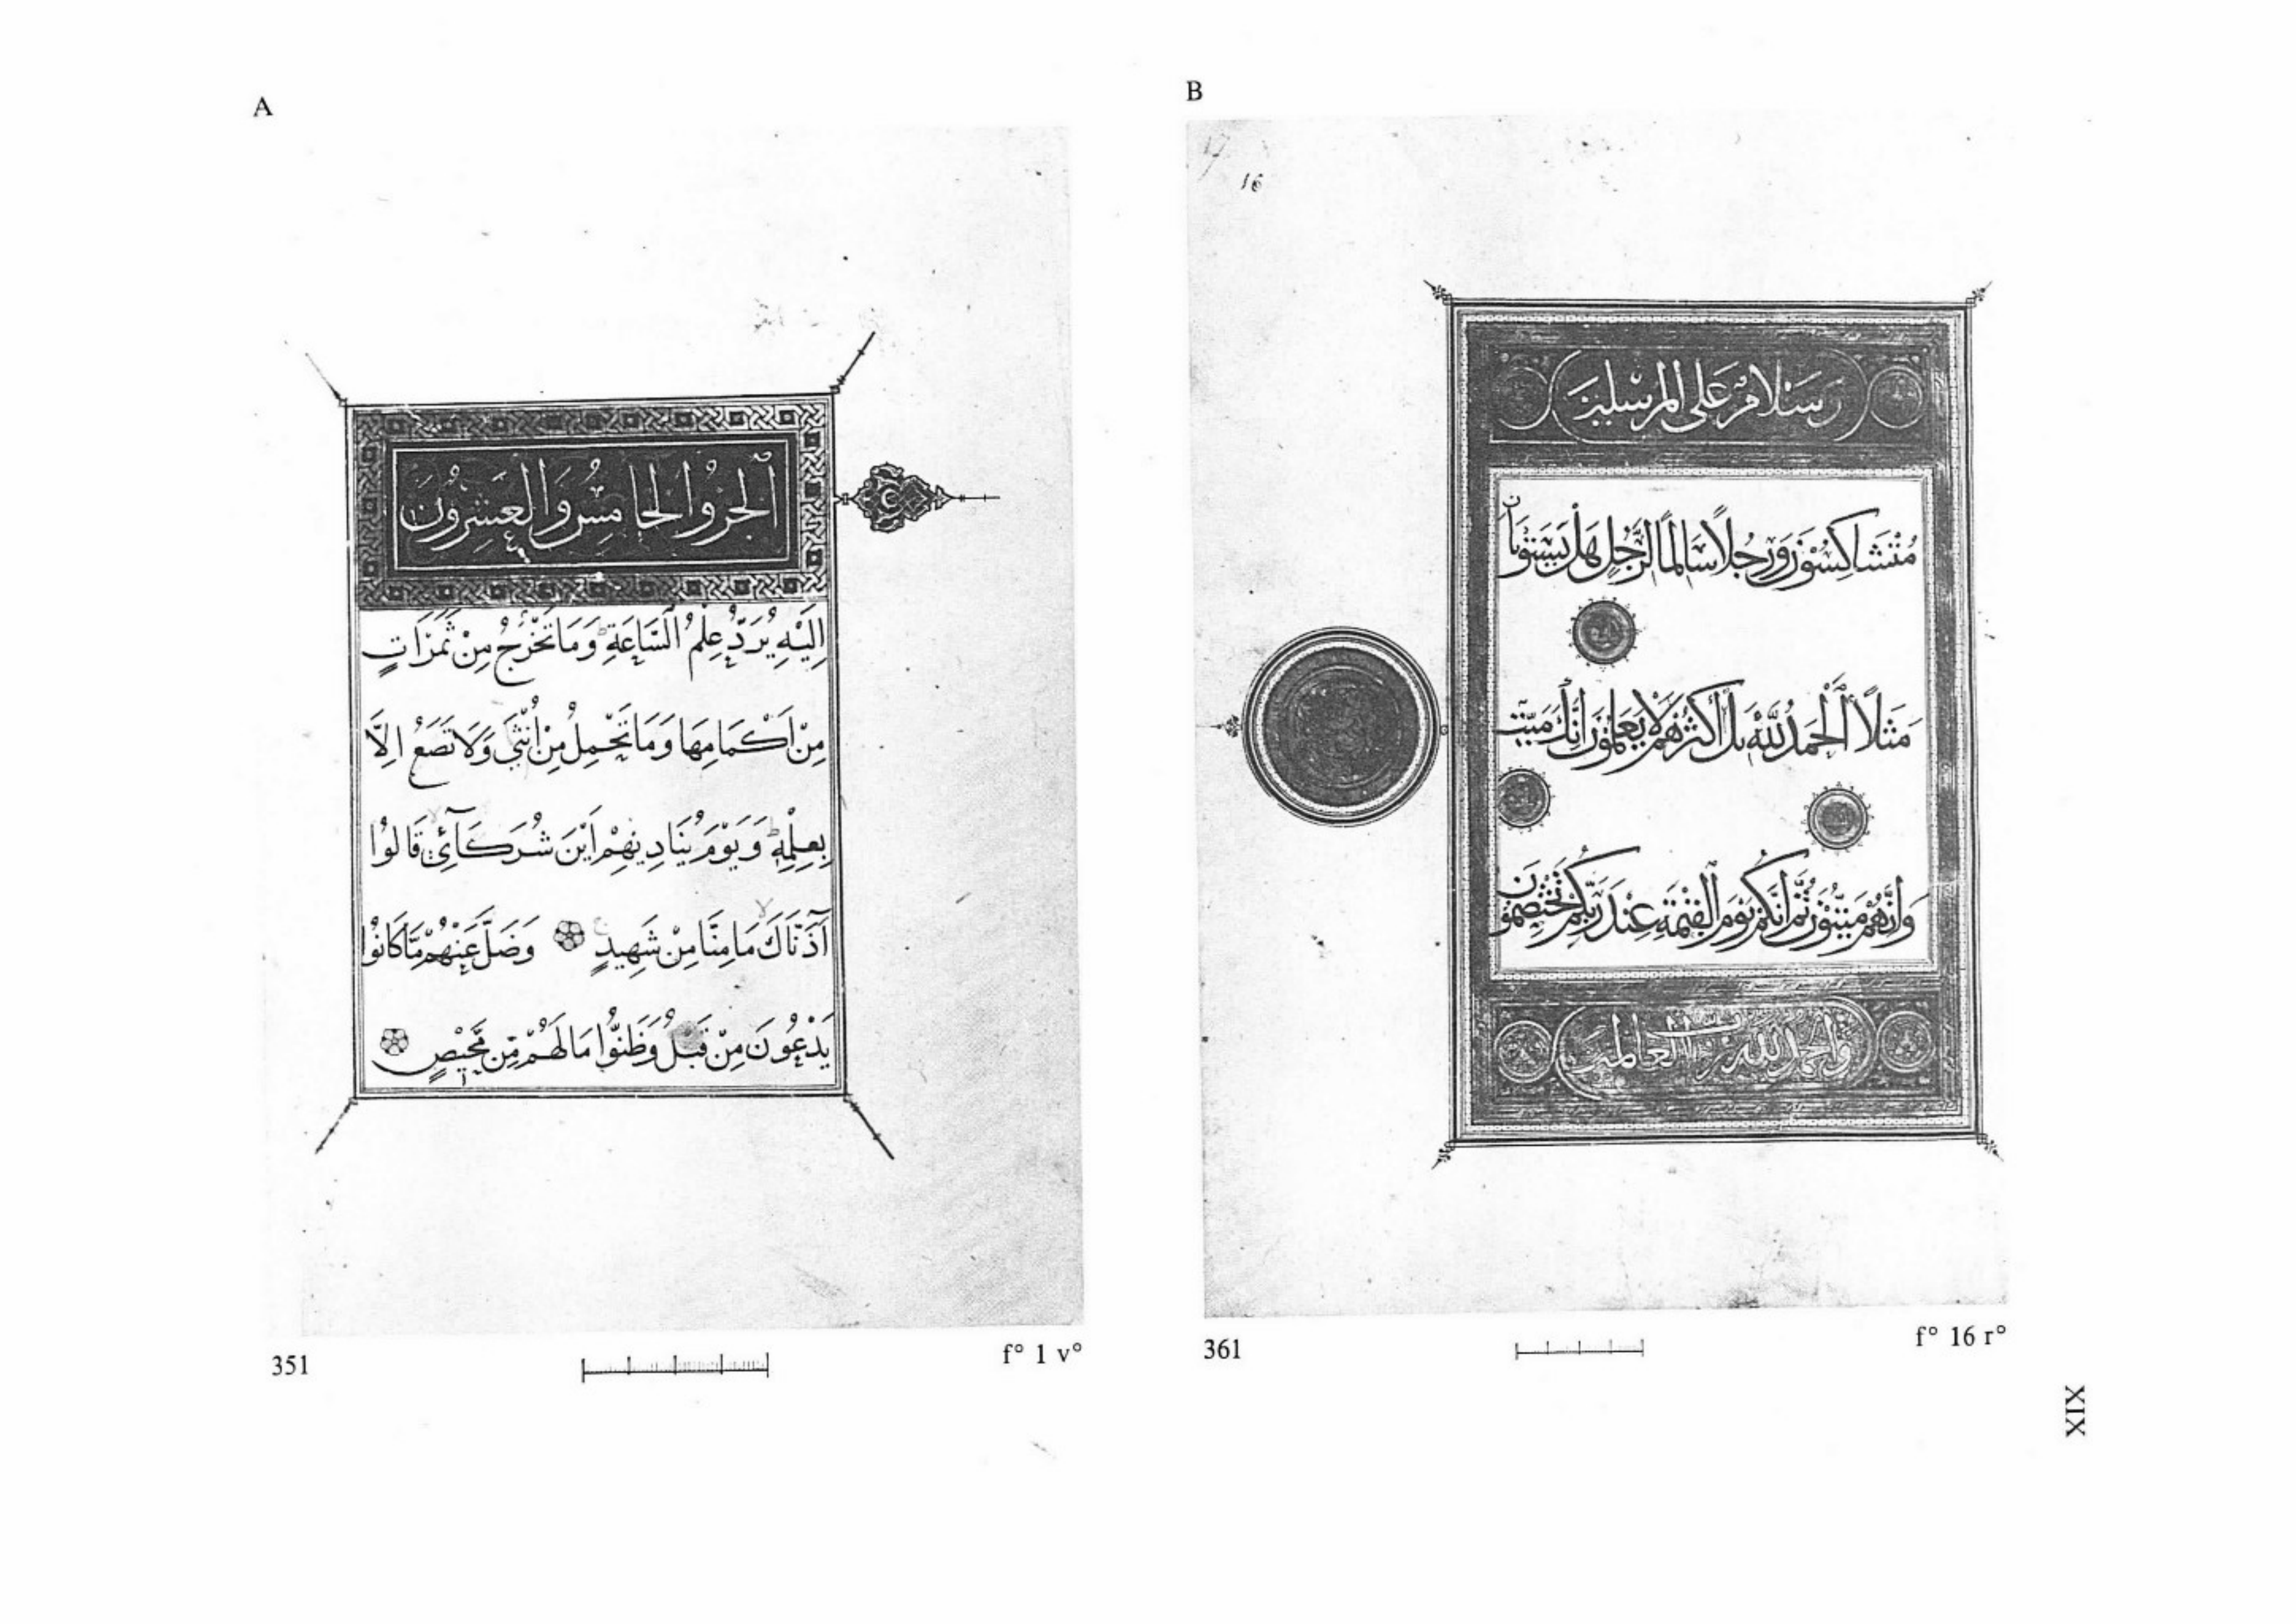 A
الجزؤ الخامس والعشرون
اِلَيْهِ يُرَدُّ عِلْمُ السَّاعَةِ ۚ وَمَا تَخْرُجُ مِنْ ثَمَرَاتٍ
مِنْ اَكْمَامِهَا وَمَا تَحْمِلُ مِنْ اُنْثٰى وَلَا تَضَعُ اِلَّا
بِعِلْمِهٖ ۚ وَيَوْمَ يُنَادِيْهِمْ اَيْنَ شُرَكَآئِيْ قَالُوْا
آذَنَّاكَ مَا مِنَّا مِنْ شَهِيدٍ وَضَلَّ عَنْهُمْ مَّا كَانُوْا
يَدْعُوْنَ مِنْ قَبْلُ وَظَنُّوْا مَا لَهُمْ مِّنْ مَّحِيْصٍ
351
f° 1 v°
B
16
وسلام على المرسلين
مُتَشَاكِسُوْنَ وَرَجُلًا سَالِمًا لِرَجُلٍ هَلْ يَسْتَوِيَانِ
مَثَلًا الْحَمْدُ لِلّٰهِ بَلْ اَكْثَرُهُمْ لَا يَعْلَمُوْنَ اِنَّكَ مَيِّتٌ
وَاِنَّهُمْ مَيِّتُوْنَ ثُمَّ اِنَّكُمْ يَوْمَ الْقِيٰمَةِ عِنْدَ رَبِّكُمْ تَخْتَصِمُوْنَ
والحمد لله رب العالمين
361
f° 16 r°
XIX